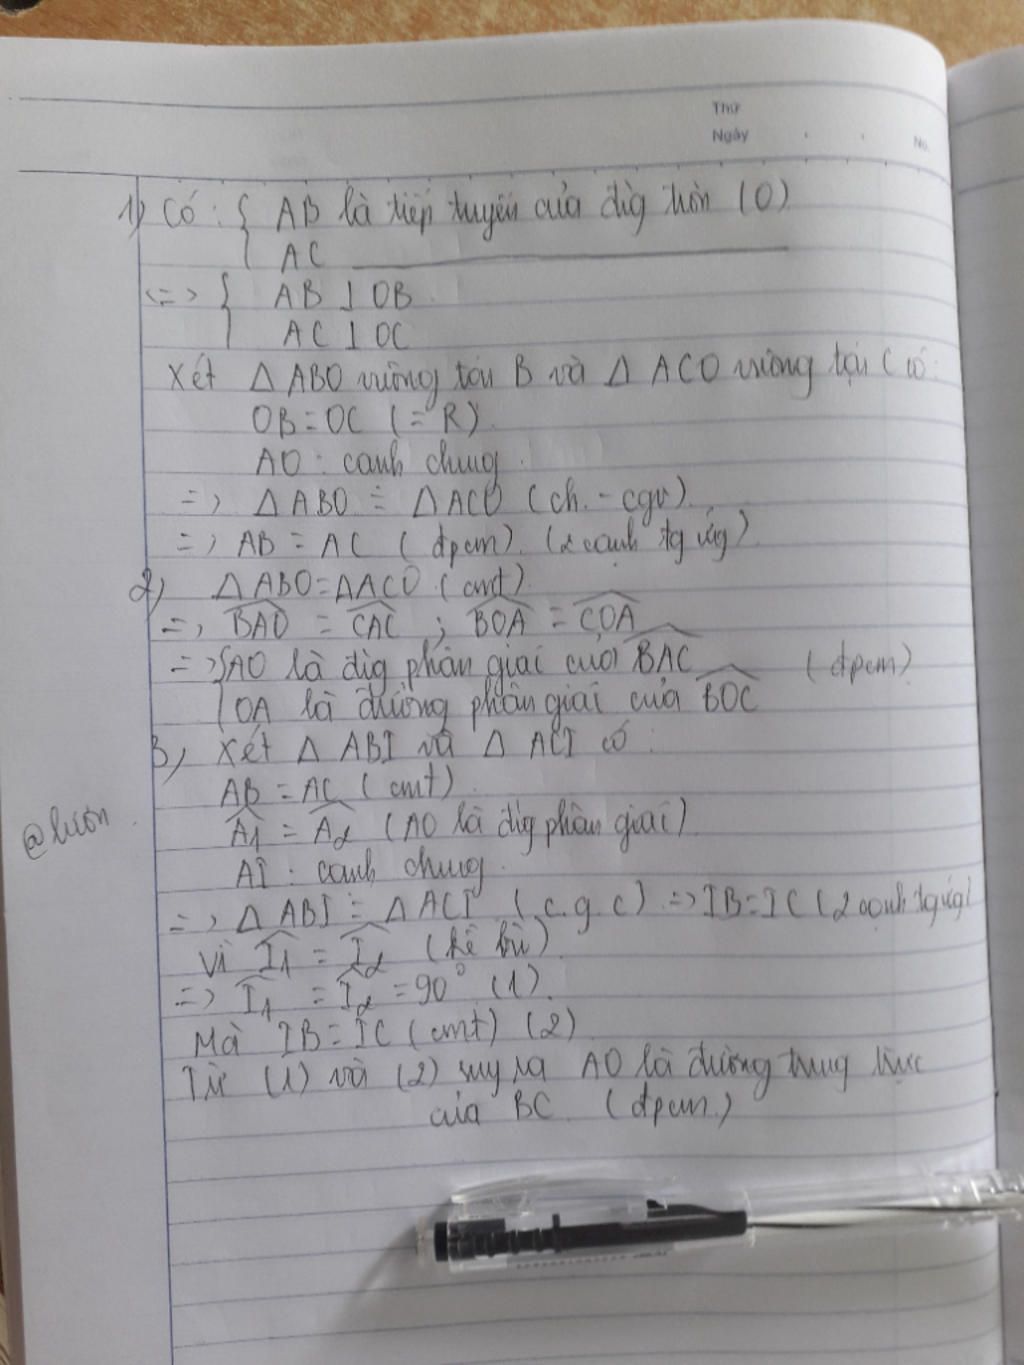 Thứ
Ngày . . No.
1) Có: { AB là tiếp tuyến của đtg tròn (O)
AC
<=> { AB ⊥ OB
AC ⊥ OC
Xét Δ ABO vuông tại B và Δ ACO vuông tại C có:
OB = OC (= R)
AO : cạnh chung
=> Δ ABO = Δ ACO (ch - cgv)
=> AB = AC (đpcm) (2 cạnh tg ứg)
2) Δ ABO = Δ ACO (cmt)
=> BAO = CAC ; BOA = COA
=> { AO là đtg phân giái của BAC (đpcm)
OA là đường phân giái của BOC
3) Xét Δ ABI và Δ ACI có :
AB = AC (cmt)
A1 = A2 (AO là đtg phân giái)
@lươn
AI : cạnh chung
=> Δ ABI = Δ ACI (c.g.c) => IB = IC (2 cạnh tg ứg)
Vì I1 = I2 (kề bù)
=> I1 = I2 = 90° (1)
Mà IB = IC (cmt) (2)
Từ (1) và (2) suy ra AO là đường trung trực
của BC. (đpcm)